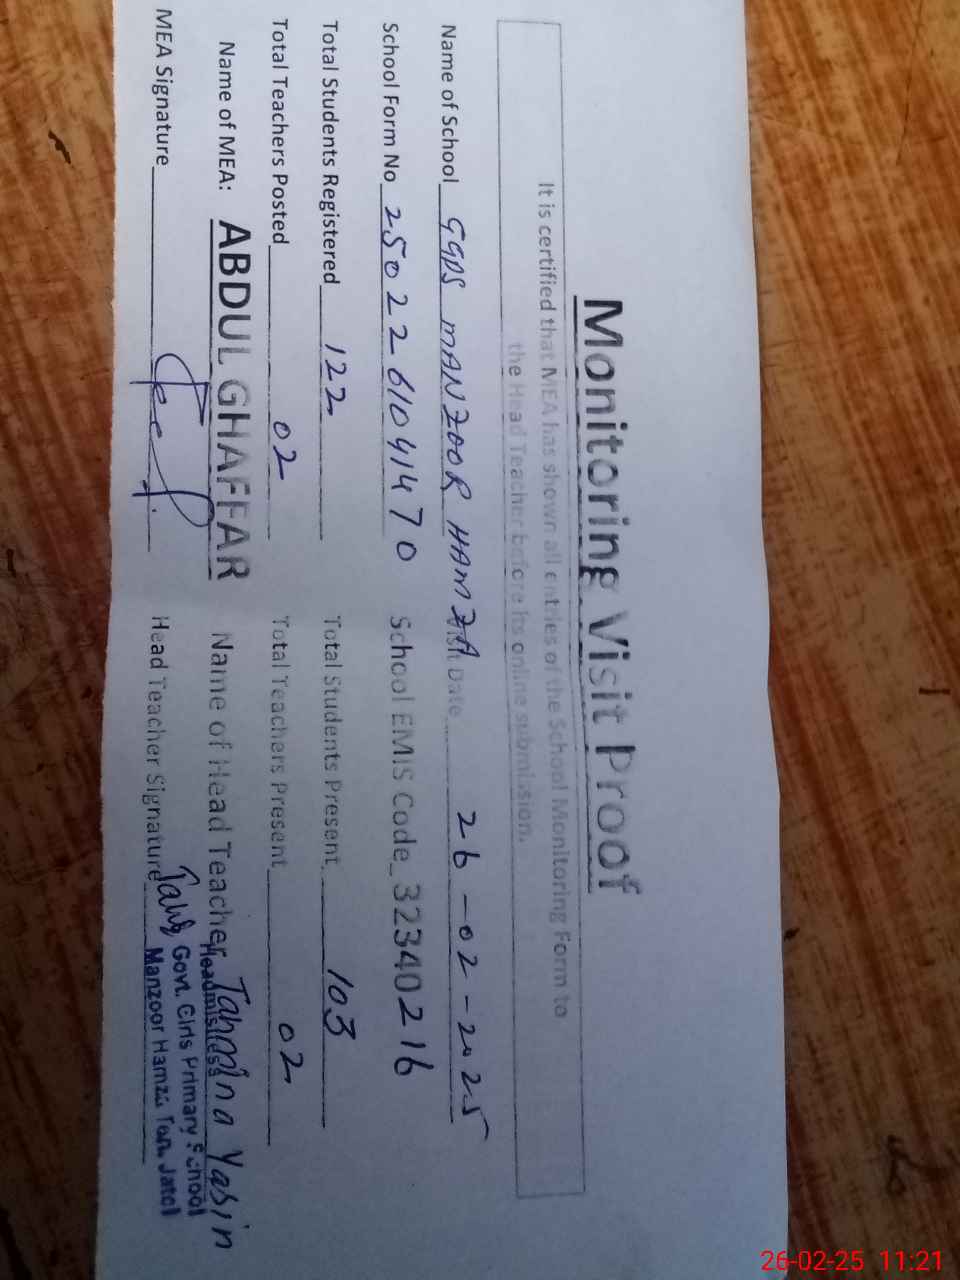 Monitoring Visit Proof
It is certified that MEA has shown all entries of the School Monitoring Form to
the Head Teacher before its online submission.
Name of School GGPS MANZOOR HAMZA Visit Date 26-02-2025
School Form No 2502261041470 School EMIS Code 32340216
Total Students Registered 122 Total Students Present 103
Total Teachers Posted 02 Total Teachers Present 02
Name of MEA: ABDUL GHAFFAR Name of Head Teacher Tahmina Yasin
MEA Signature Head Teacher Signature
Headmistress
Govt. Girls Primary School
Manzoor Hamza Teh. Jatoi
26-02-25 11:21